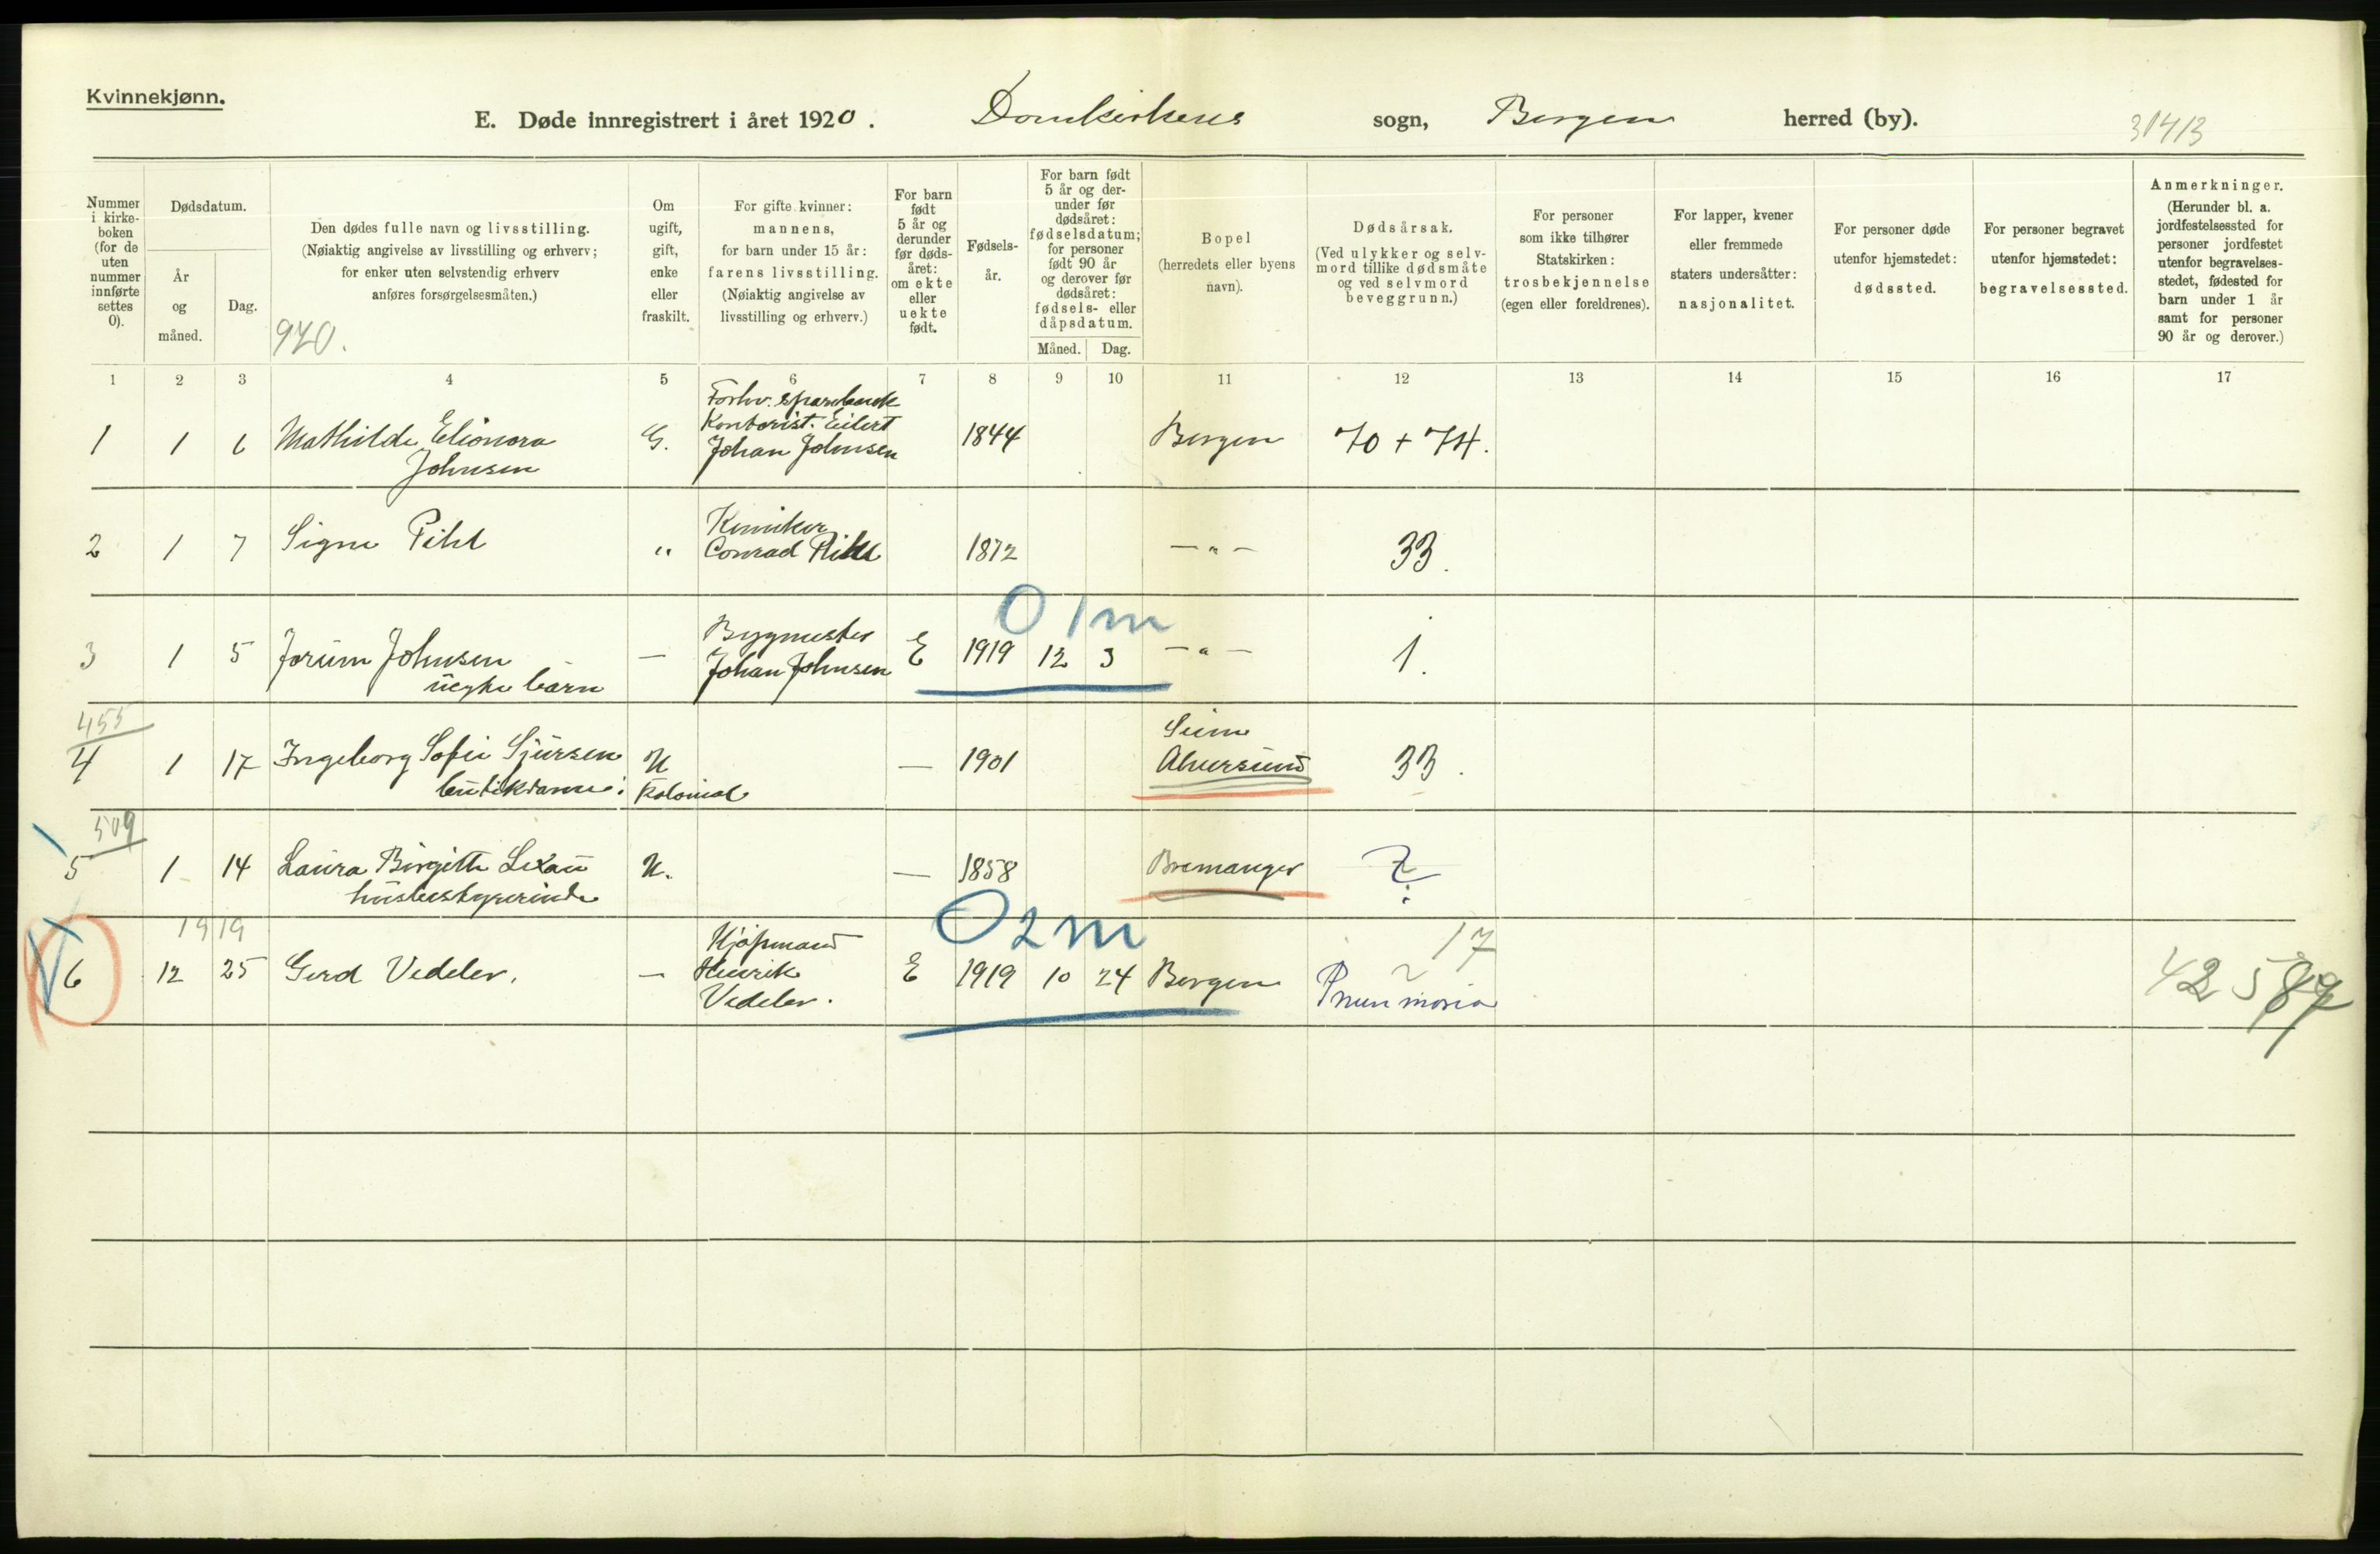 Kvinnekjønn.
E. Døde innregistrert i året 1920. Domkirkens sogn, Bergen herred (by). 31413
Nummer i kirkeboken (for de uten nummer innførte settes 0).
Dødsdatum.
År og måned.
Dag.
Den dødes fulle navn og livsstilling.
(Nøiaktig angivelse av livsstilling og erhverv; for enker uten selvstendig erhverv anføres forsørgelsesmåten.)
920.
Om ugift, gift, enke eller fraskilt.
For gifte kvinner: mannens, for barn under 15 år: farens livsstilling.
(Nøiaktig angivelse av livsstilling og erhverv.)
For barn født 5 år og derunder før dødsåret: om ekte eller uekte født.
Fødselsår.
For barn født 5 år og derunder før dødsåret: fødselsdatum; for personer født 90 år og derover før dødsåret: fødsels- eller dåpsdatum.
Måned. Dag.
Bopel (herredets eller byens navn).
Dødsårsak.
(Ved ulykker og selvmord tillike dødsmåte og ved selvmord beveggrunn.)
For personer som ikke tilhører Statskirken: trosbekjennelse (egen eller foreldrenes).
For lapper, kvener eller fremmede staters undersåtter: nasjonalitet.
For personer døde utenfor hjemstedet: dødssted.
For personer begravet utenfor hjemstedet: begravelsessted.
Anmerkninger.
(Herunder bl. a. jordfestelsessted for personer jordfestet utenfor begravelsesstedet, fødested for barn under 1 år samt for personer 90 år og derover.)
1 2 3 4 5 6 7 8 9 10 11 12 13 14 15 16 17
Forhv. sparebank
Kontorist. Eilert
1 1 6 Mathilde Elionora G. Johan Johnsen 1844 Bergen 70 + 74.
Johnsen
Kemiker
2 1 7 Signe Pihl " Conrad Pihl 1872 — " — 33.
0 1 m
Bygmester
3 1 5 Jorun Johnsen — Johan Johnsen E 1919 12 3 — " — 1.
barn
455
Seim
4 1 17 Ingeborg Sofie Sjursen U — 1901 Alversund 33.
butikdame i Kolonial
509
5 1 14 Laura Birgitte Lexau U. — 1858 Bremanger ?
husbestyrerinde
1919 0 2 m
Kjøpmand 17
6 12 25 Gerd Vedeler. — Henrik E 1919 10 24 Bergen Pneumonia 42589
Vedeler.